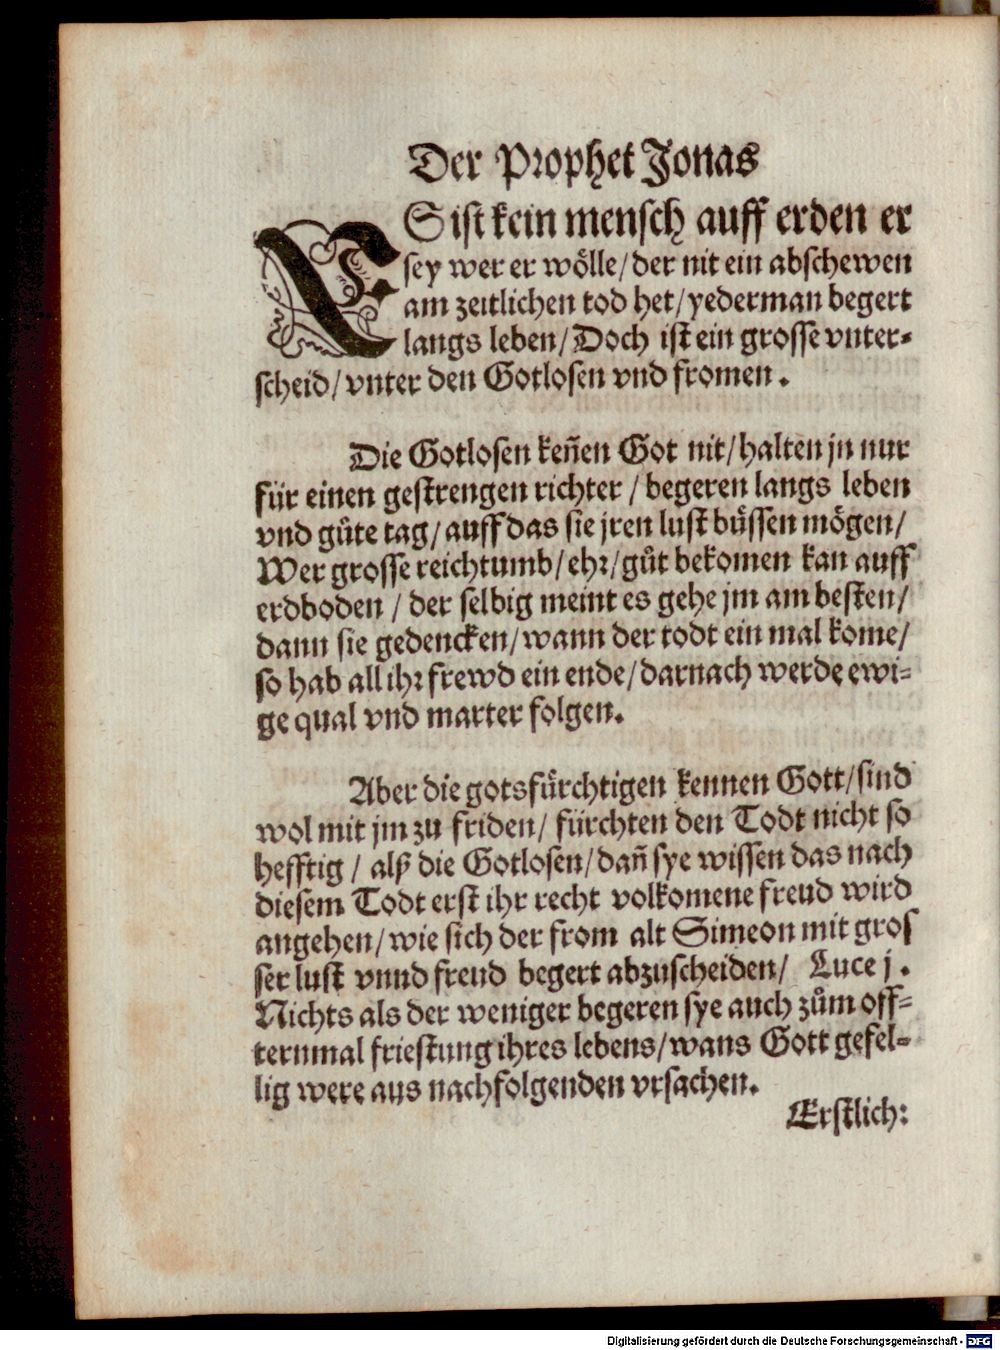 Der Prophet Jonas
ES ist kein mensch auff erden er
sey wer er wölle/der nit ein abschewen
am zeitlichen tod het/yederman begert
langs leben/Doch ist ein grosse vnter-
scheid/vnter den Gotlosen vnd fromen.
Die Gotlosen keñen Got nit/halten jn nur
für einen gestrengen richter/begeren langs leben
vnd gůte tag/auff das sie jren lust büssen mögen/
Wer grosse reichtumb/ehr/gůt bekomen kan auff
erdboden/der selbig meint es gehe jm am besten/
dann sie gedencken/wann der todt ein mal kome/
so hab all ihr frewd ein ende/darnach werde ewi-
ge qual vnd marter folgen.
Aber die gotsfürchtigen kennen Gott/sind
wol mit jm zu friden/fürchten den Todt nicht so
hefftig/alß die Gotlosen/dañ sye wissen das nach
diesem Todt erst ihr recht volkomene freud wird
angehen/wie sich der from alt Simeon mit gros
ser lust vnnd freud begert abzuscheiden/ Luce j.
Nichts als der weniger begeren sye auch zům off-
ternmal friestung ihres lebens/wans Gott gefel-
lig were aus nachfolgenden vrsachen.
Erstlich:
Digitalisierung gefördert durch die Deutsche Forschungsgemeinschaft - DFG